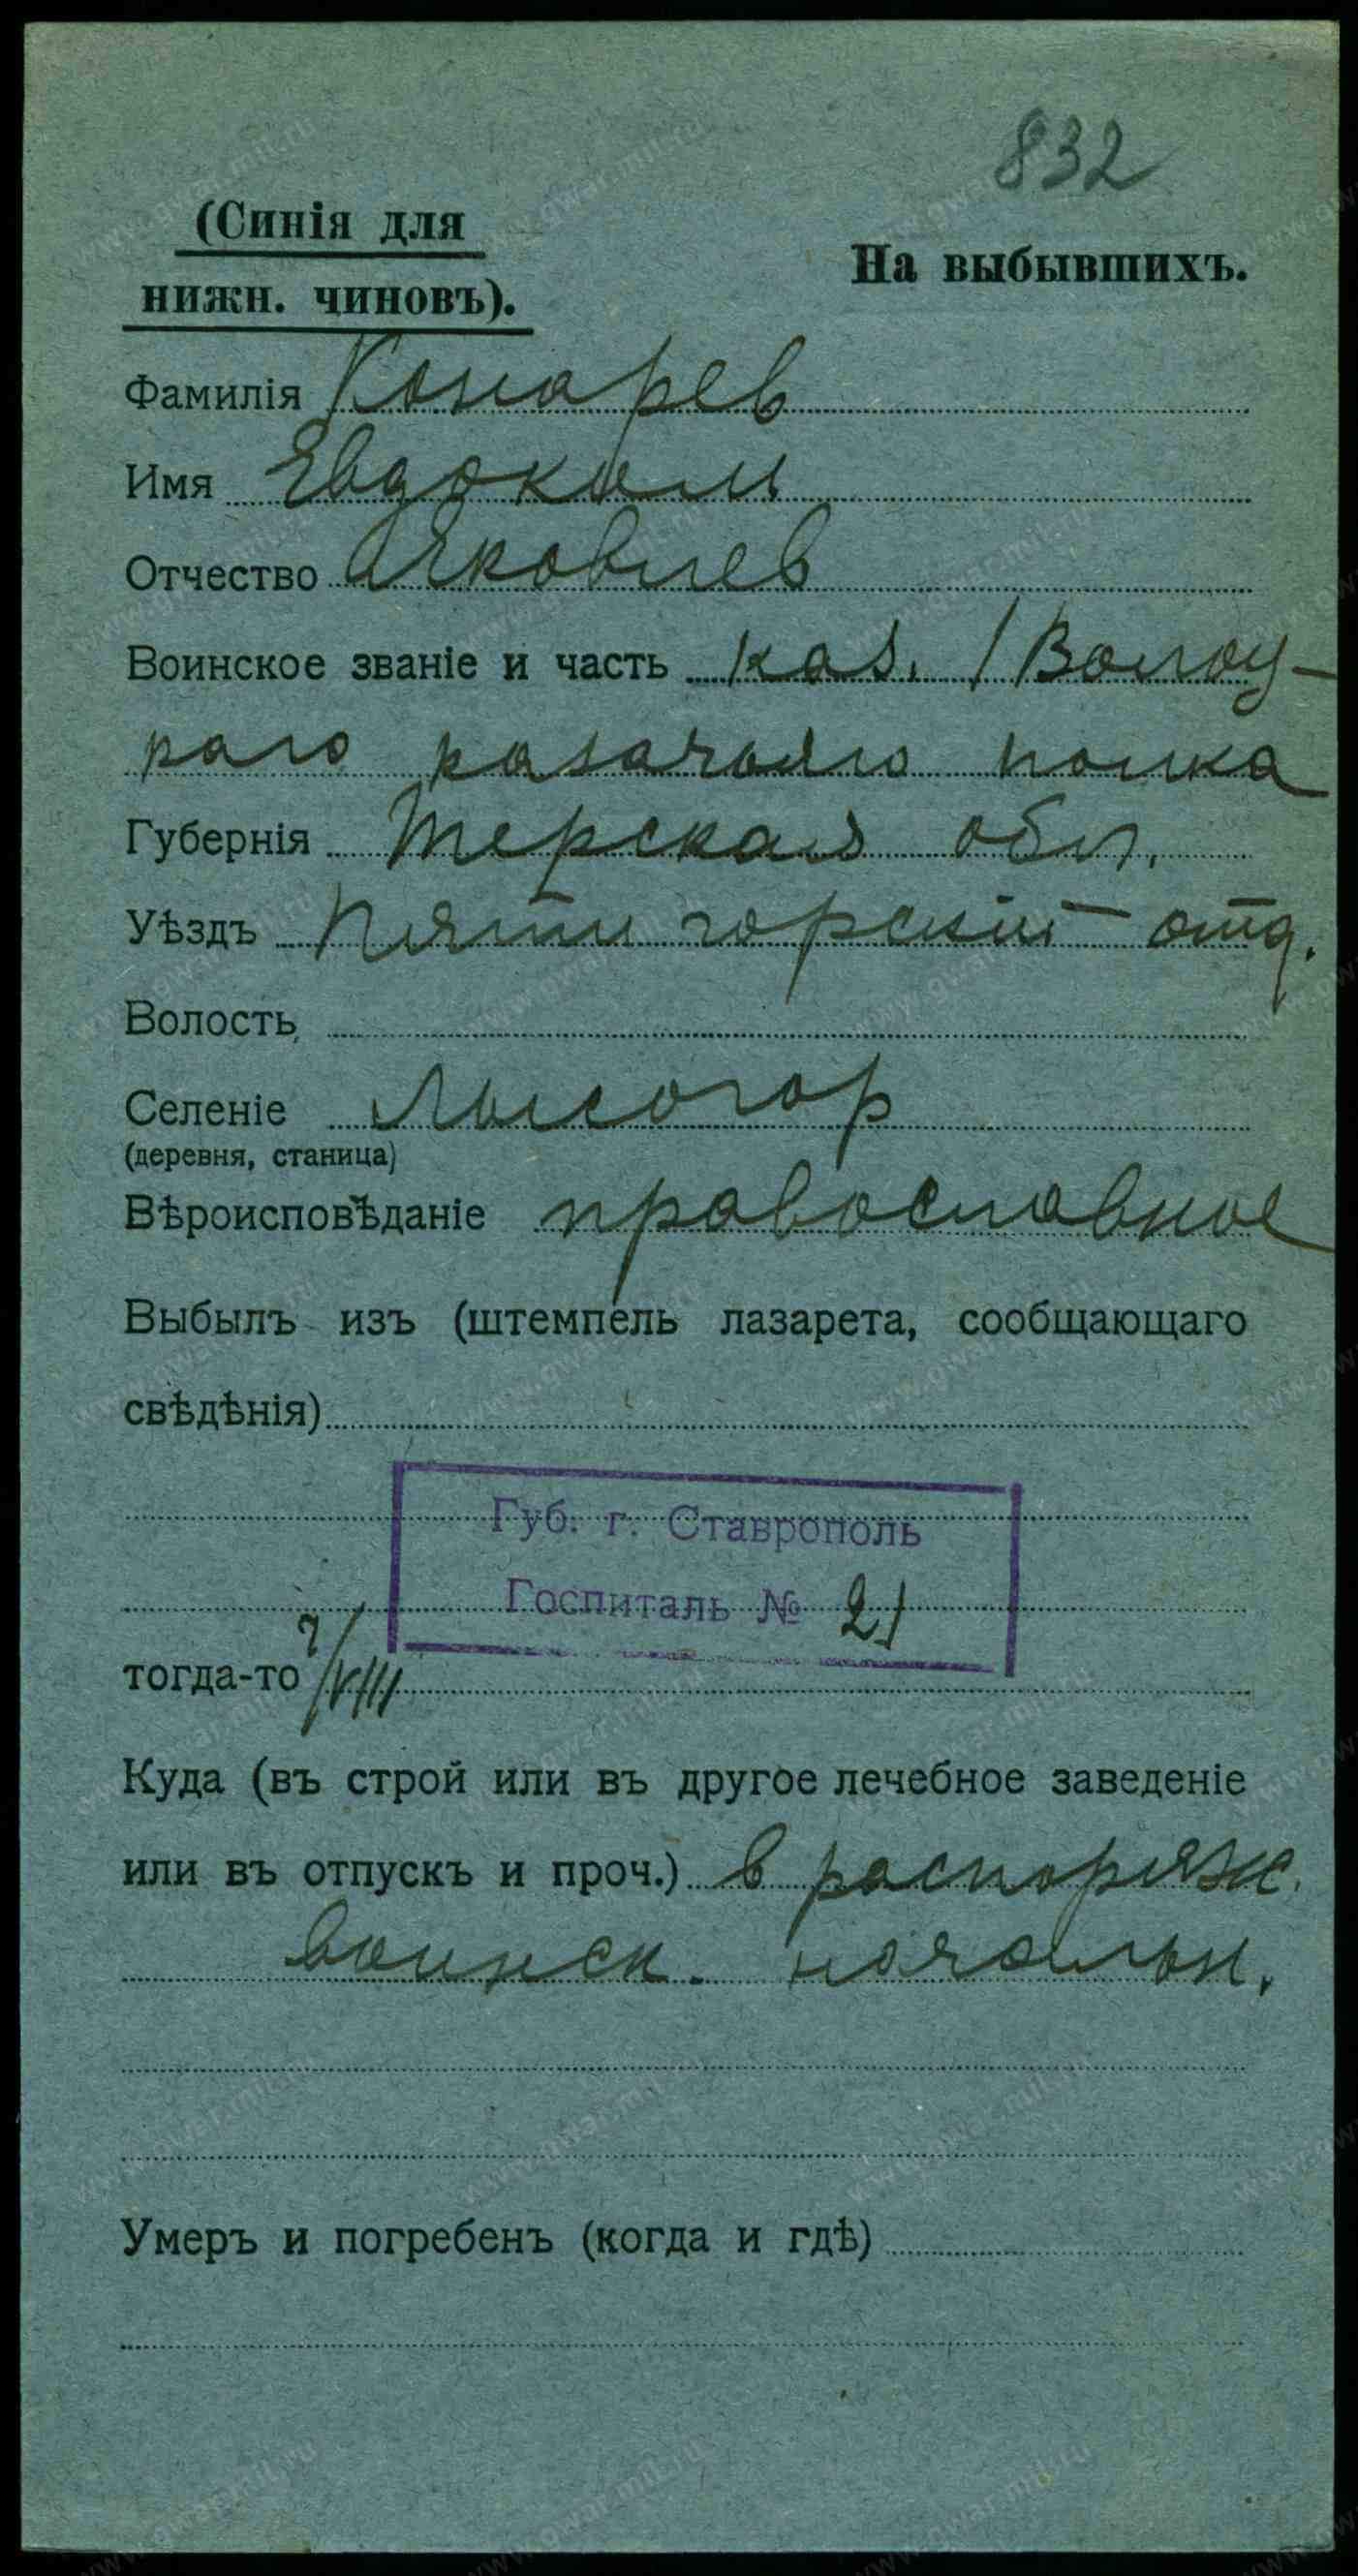 832
(Синія для
На выбывшихъ.
нижн. чиновъ).
Фамилія Конарев
Имя Евдоким
Отчество Яковлев
Воинское званіе и часть каз. 1 Волгу-
раго казачьяго полка
Губернія Терская обл.
Уѣздъ Пятигорскій отд.
Волость
Селеніе Лысогор
(деревня, станица)
Вѣроисповѣданіе православное
Выбылъ изъ (штемпель лазарета, сообщающаго
свѣдѣнія)
Губ. г. Ставрополь
Госпиталь № 21
тогда-то 7/VIII
Куда (въ строй или въ другое лечебное заведеніе
или въ отпускъ и проч.) в распоряж.
воинск. начальн.
Умеръ и погребенъ (когда и гдѣ)